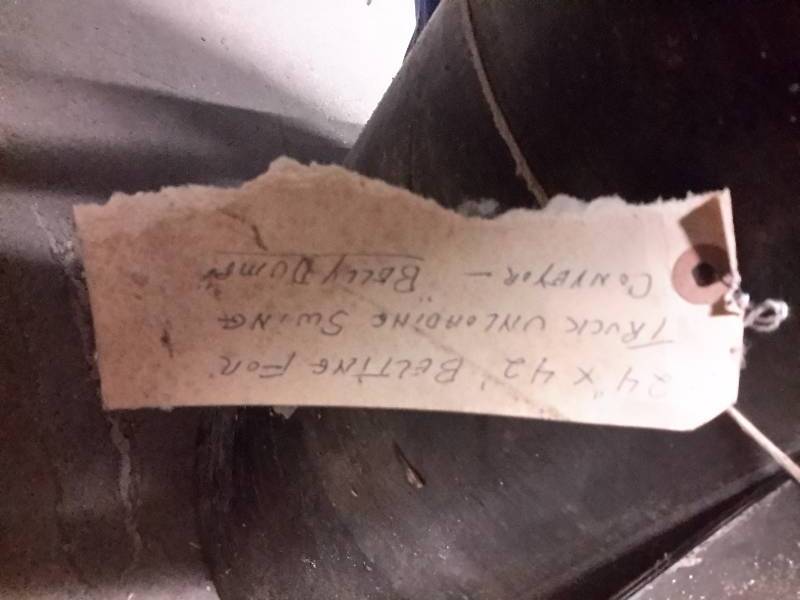 24" x 42' BELTING FOR
TRUCK UNLOADING SWING
CONVEYOR - "BELLY DUMP"